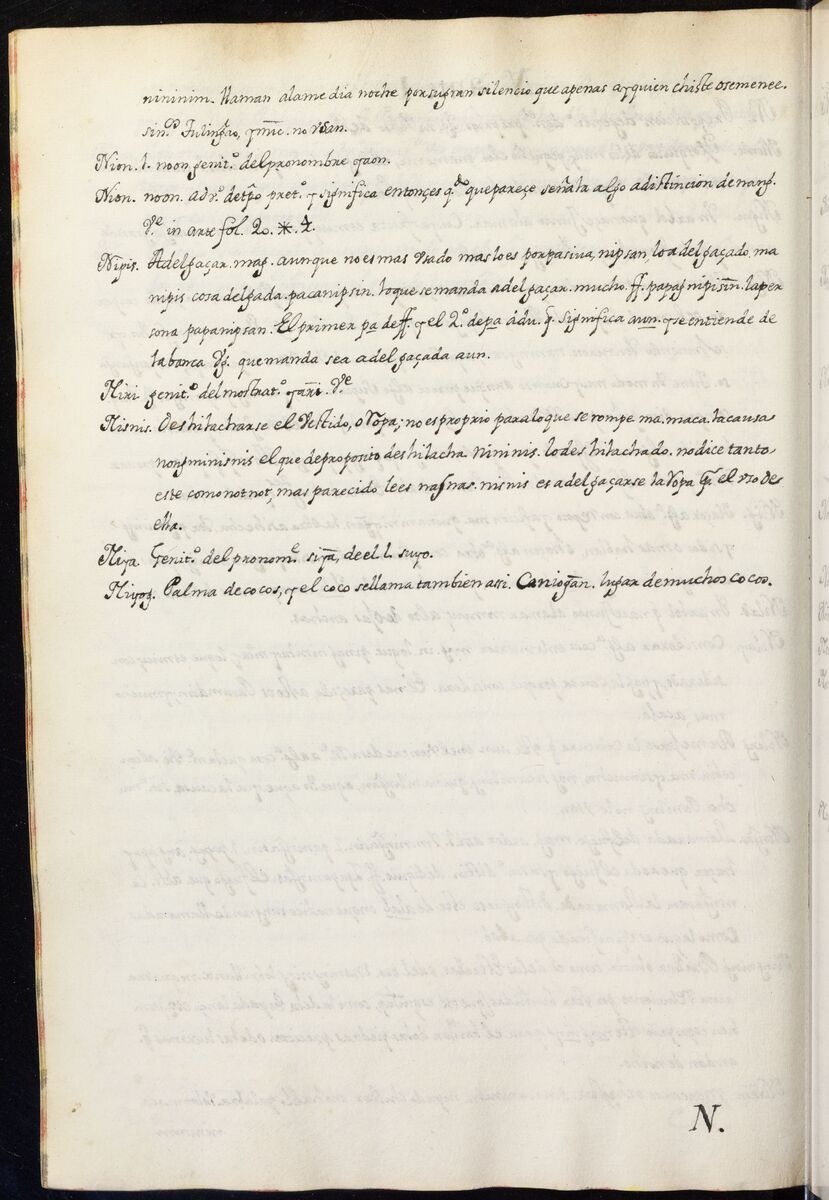 nininim. Naman alame dia noche por su gran silencio que apenas ay quien chiste o se menee.
sin.º Tulingão, y mic. no Usan.
Nion. l. noon genit.º del pronombre yaon.
Nion. noon. adv.º de tpõ pret.º y significa entonçes q.do que pareçe señala algo a distincion de nang.
V.e in arte fol. 20. * 4.
Nipis. Adelgaçar. mag. aunque no es mas Usado mas lo es por pasiva, nipsan, lo adelgaçado, ma
nipis cosa delgada. pacanipsin. lo que se manda adelgaçar mucho. ff. papag nipisin. la per
sona papanipsan. El primer pa de ff. y el 2.º de pa adu. q. significa aun. y se entiende de
la banca Vg. que manda sea adelgaçada aun.
Niri genit.º del mostrat.º yari. V.e
Nisnis. Deshilacharse el Vestido, o Ropa; no es proprio para lo que se rompe ma. maca. la causa
nongminisnis el que de proposito deshilacha. Nininis. lo deshilachado. no dice tanto
este como notnot, mas parecido le es nasnas. nisnis es adelgaçarse la Ropa con el uso de
ella.
Niya. Genit.º del pronom.e siya, de el l. suyo.
Niyog. Palma de cocos, y el coco se llama tambien assi. Caniogan. lugar de muchos cocos.
N.